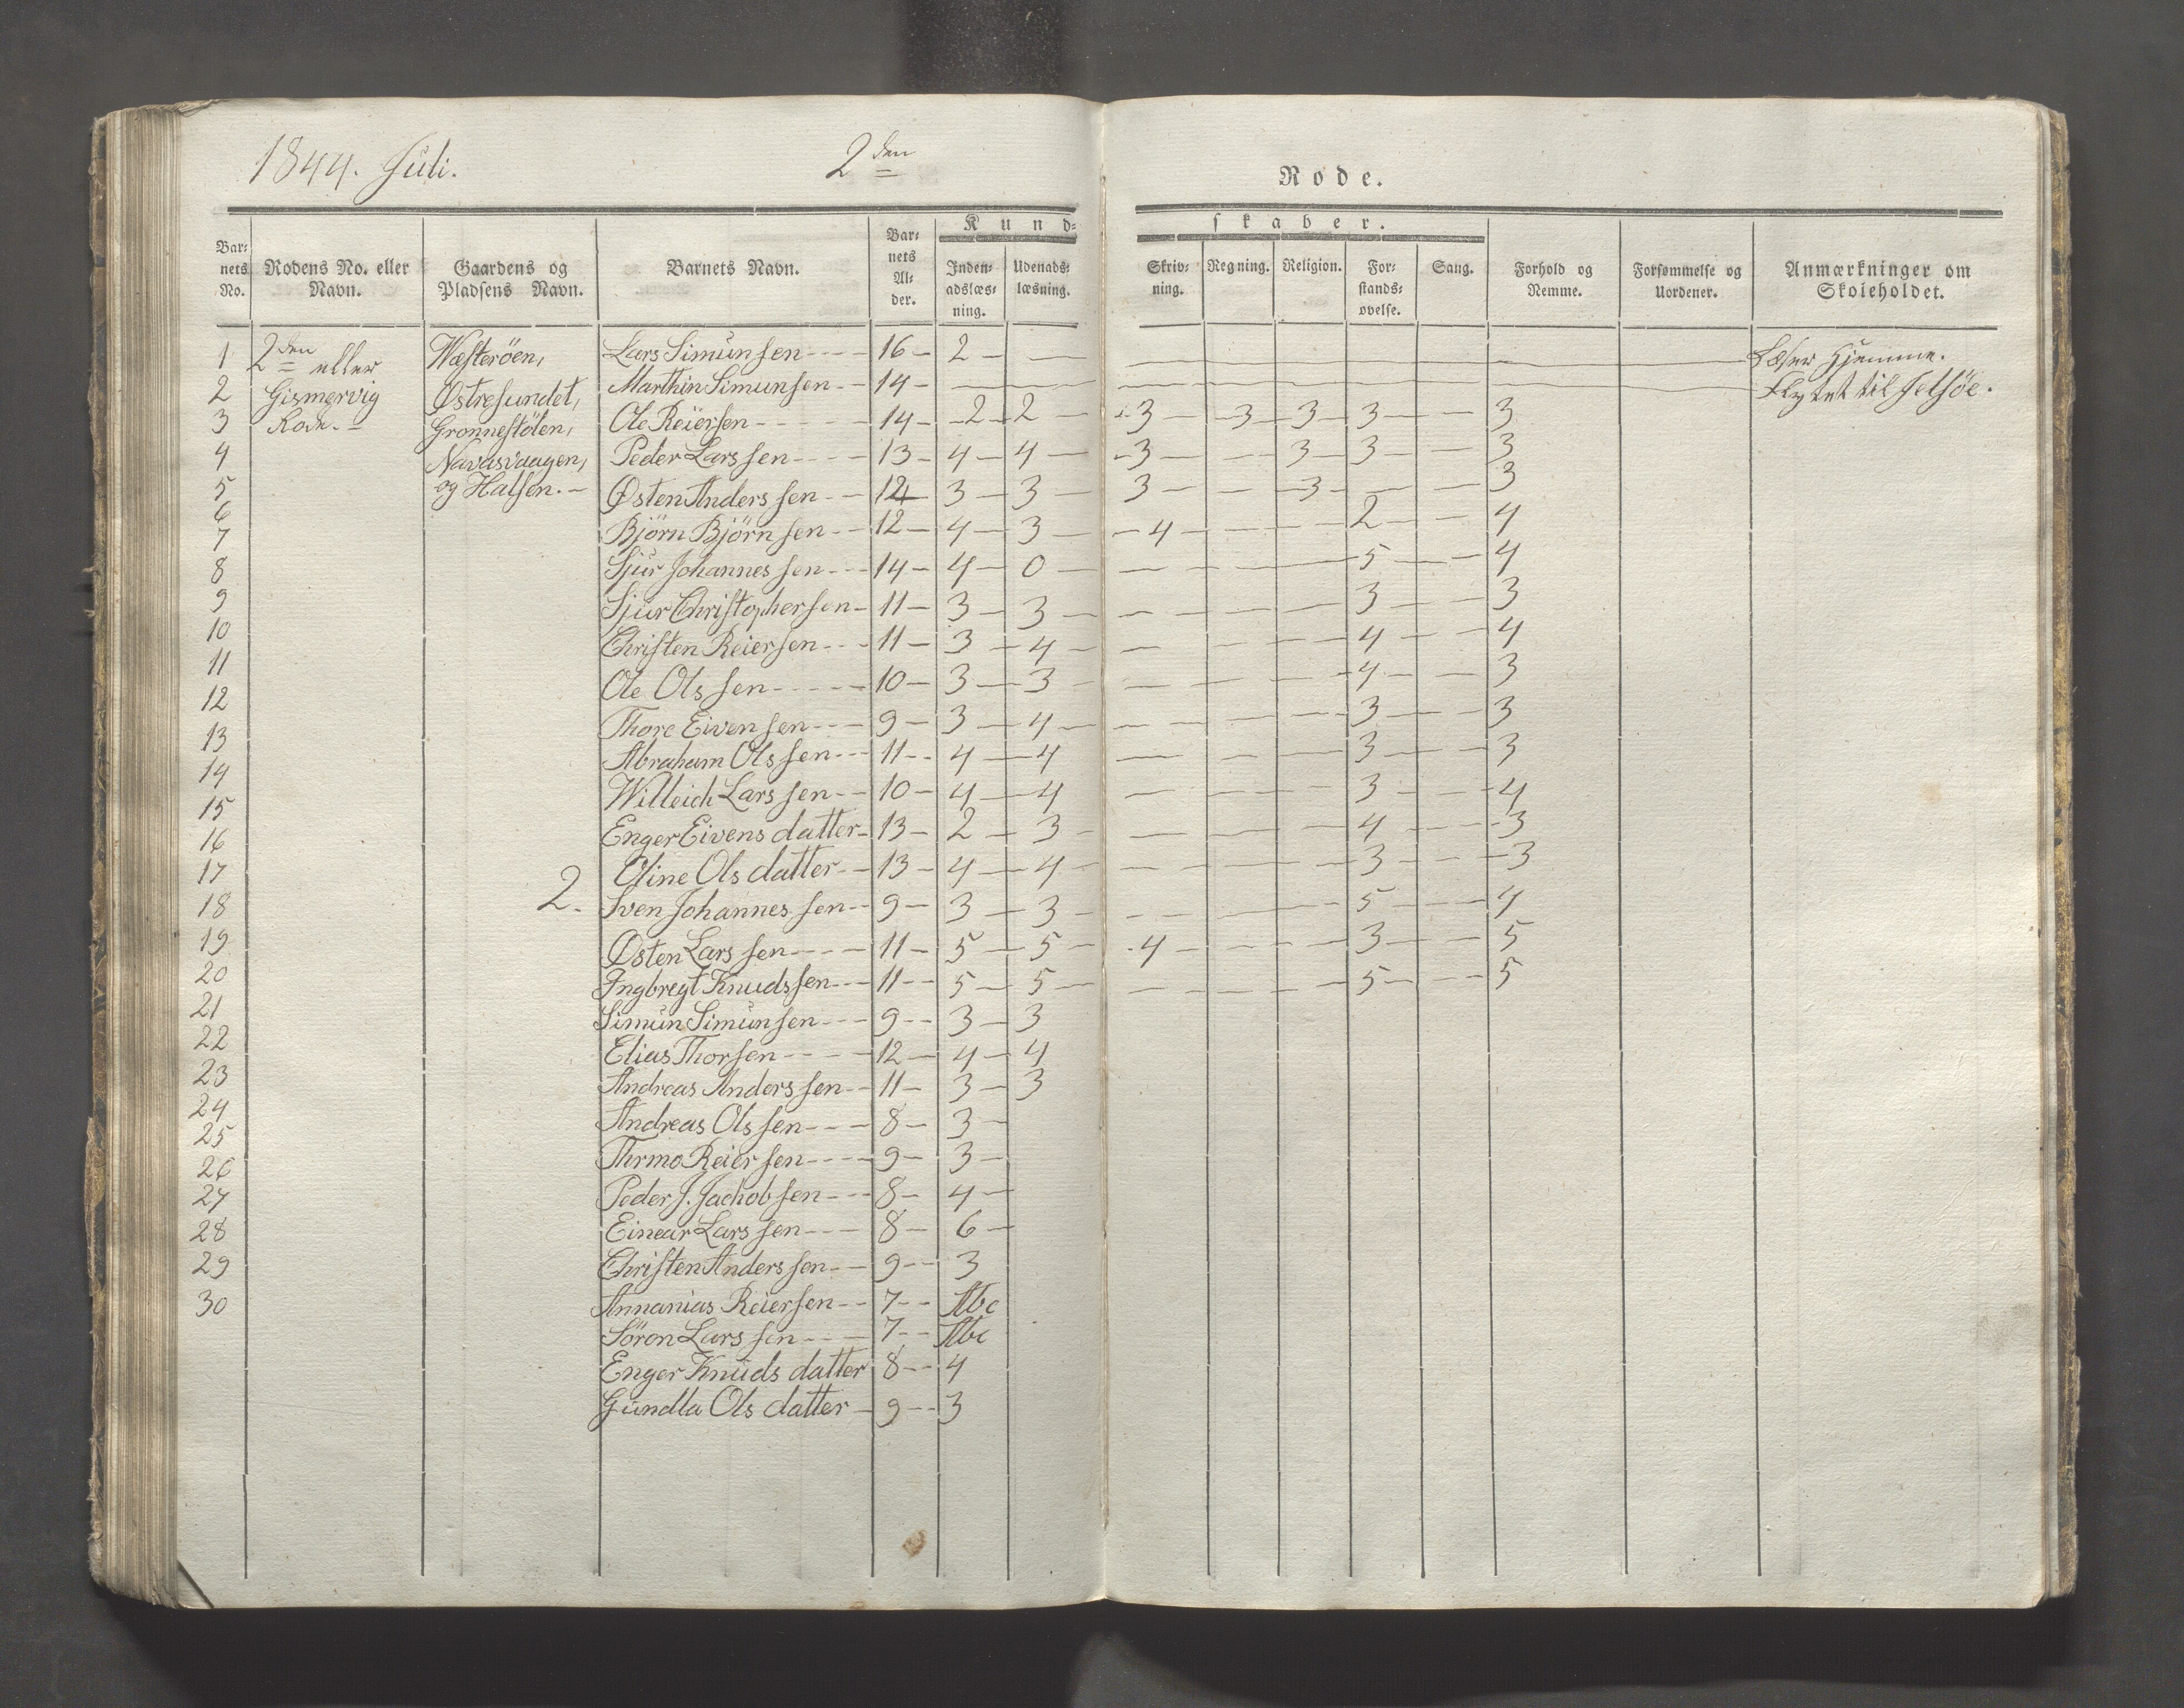 1844. Juli.
2den
Rode.
Kund-
skaber.
Bar-
nets
No.
Rodens No. eller
Navn.
Gaardens og
Pladsens Navn.
Barnets Navn.
Bar-
nets
Al-
der.
Inden-
adslæs-
ning.
Udenads-
læsning.
Skriv-
ning.
Regning.
Religion.
For-
stands-
øvelse.
Sang.
Forhold og
Nemme.
Forsømmelse og
Uordener.
Anmærkninger om
Skoleholdet.
1 2den eller Wæsteröen, Lars Simunsen---- 16- 2 - — Læser Hjemme.
2 Gismervig Østresundet, Marthin Simunsen-- 14- — Flytet til Jelsöe.
3 Rode.- Gronnestölen, Ole Reiersen----- 14- -2 -2 - -3 -3 -3 -3 - - 3
4 Navasvaagen, Peder Larssen---- 13- 4- 4 - -3 - - 3 -3 - - 3
5 og Halsen.- Østen Anderssen-- 12- 3- 3 - 3 - - -3- - - 3
6 Björn Björnsen-- 12- 4- 3 - -4- - - 2 - - 4
7 Sjur Johannessen--- 14- 4- 0 - - - - 5 - - 4
8 Sjur Christophersen- 11- 3- 3 - - - - 3 - - 3
9 Christen Reiersen--- 11- 3 - 4 - - - - 4 - - 4
10 Ole Olssen----- 10- 3- 3 - - - - 4 - - 3
11 Thore Eivensen--- 9- 3 - 4 - - - - 3 - - 3
12 Abraham Olssen--- 11-- 4 - 4 - - - 3 - - 3
13 Willeich Larssen-- 10- 4 - 4 - - - 3 - - 4
14 Enger Eivensdatter- 13- 2 - 3 - - - - 4 - - 3
15 Oline Olsdatter-- 13- 4- 4 - - - - 3 - - 3
16 2. Sven Johannessen-- 9- 3 - 3 - - - - 5 - - 4
17 Østen Larssen---- 11- 5 - 5 - -4- - - 3 - - 5
18 Ingbregt Knudssen--- 11-- 5 - 5 - - - - 5 - - 5
19 Simun Simunsen--- 9-- 3 - 3
20 Elias Thorsen---- 12- 4- 4
21 Andreas Anderssen-- 11- 3- 3
22 Andreas Olssen--- 8- 3-
23 Thrmo Reiersen---- 9- 3-
24 Peder J. Jachobsen--- 8- 4-
25 Einear Larssen--- 8- 6-
26 Christen Anderssen-- 9-- 3
27 Annanias Reiersen-- 7-- Abc
28 Sören Larssen--- 7-- Abc
29 Enger Knudsdatter 8-- 4
30 Gundla Olsdatter- 9-- 3